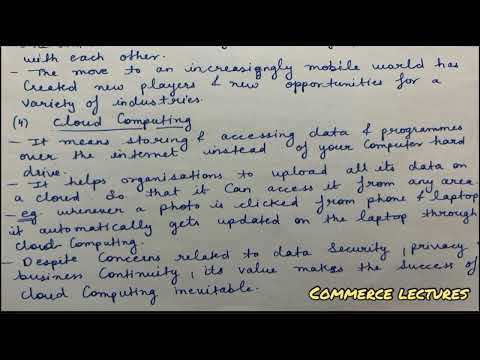 with each other.
- The move to an increasigngly mobile world has
Created new players & new opportunities for a
variety of industries.
(4) Cloud Computing
- It means storing & accessing data & programmes
over the internet instead of your Computer hard
drive.
- It helps organisations to upload all its data on
a cloud so that it Can access it from any area
- eg. whenever a photo is clicked from phone & laptop
it automatically gets updated on the laptop through
cloud Computing.
- Despite Concerns related to data Security, privacy &
business Continuity, its value makes the success of
cloud Computing inevitable.
COMMERCE LECTURES